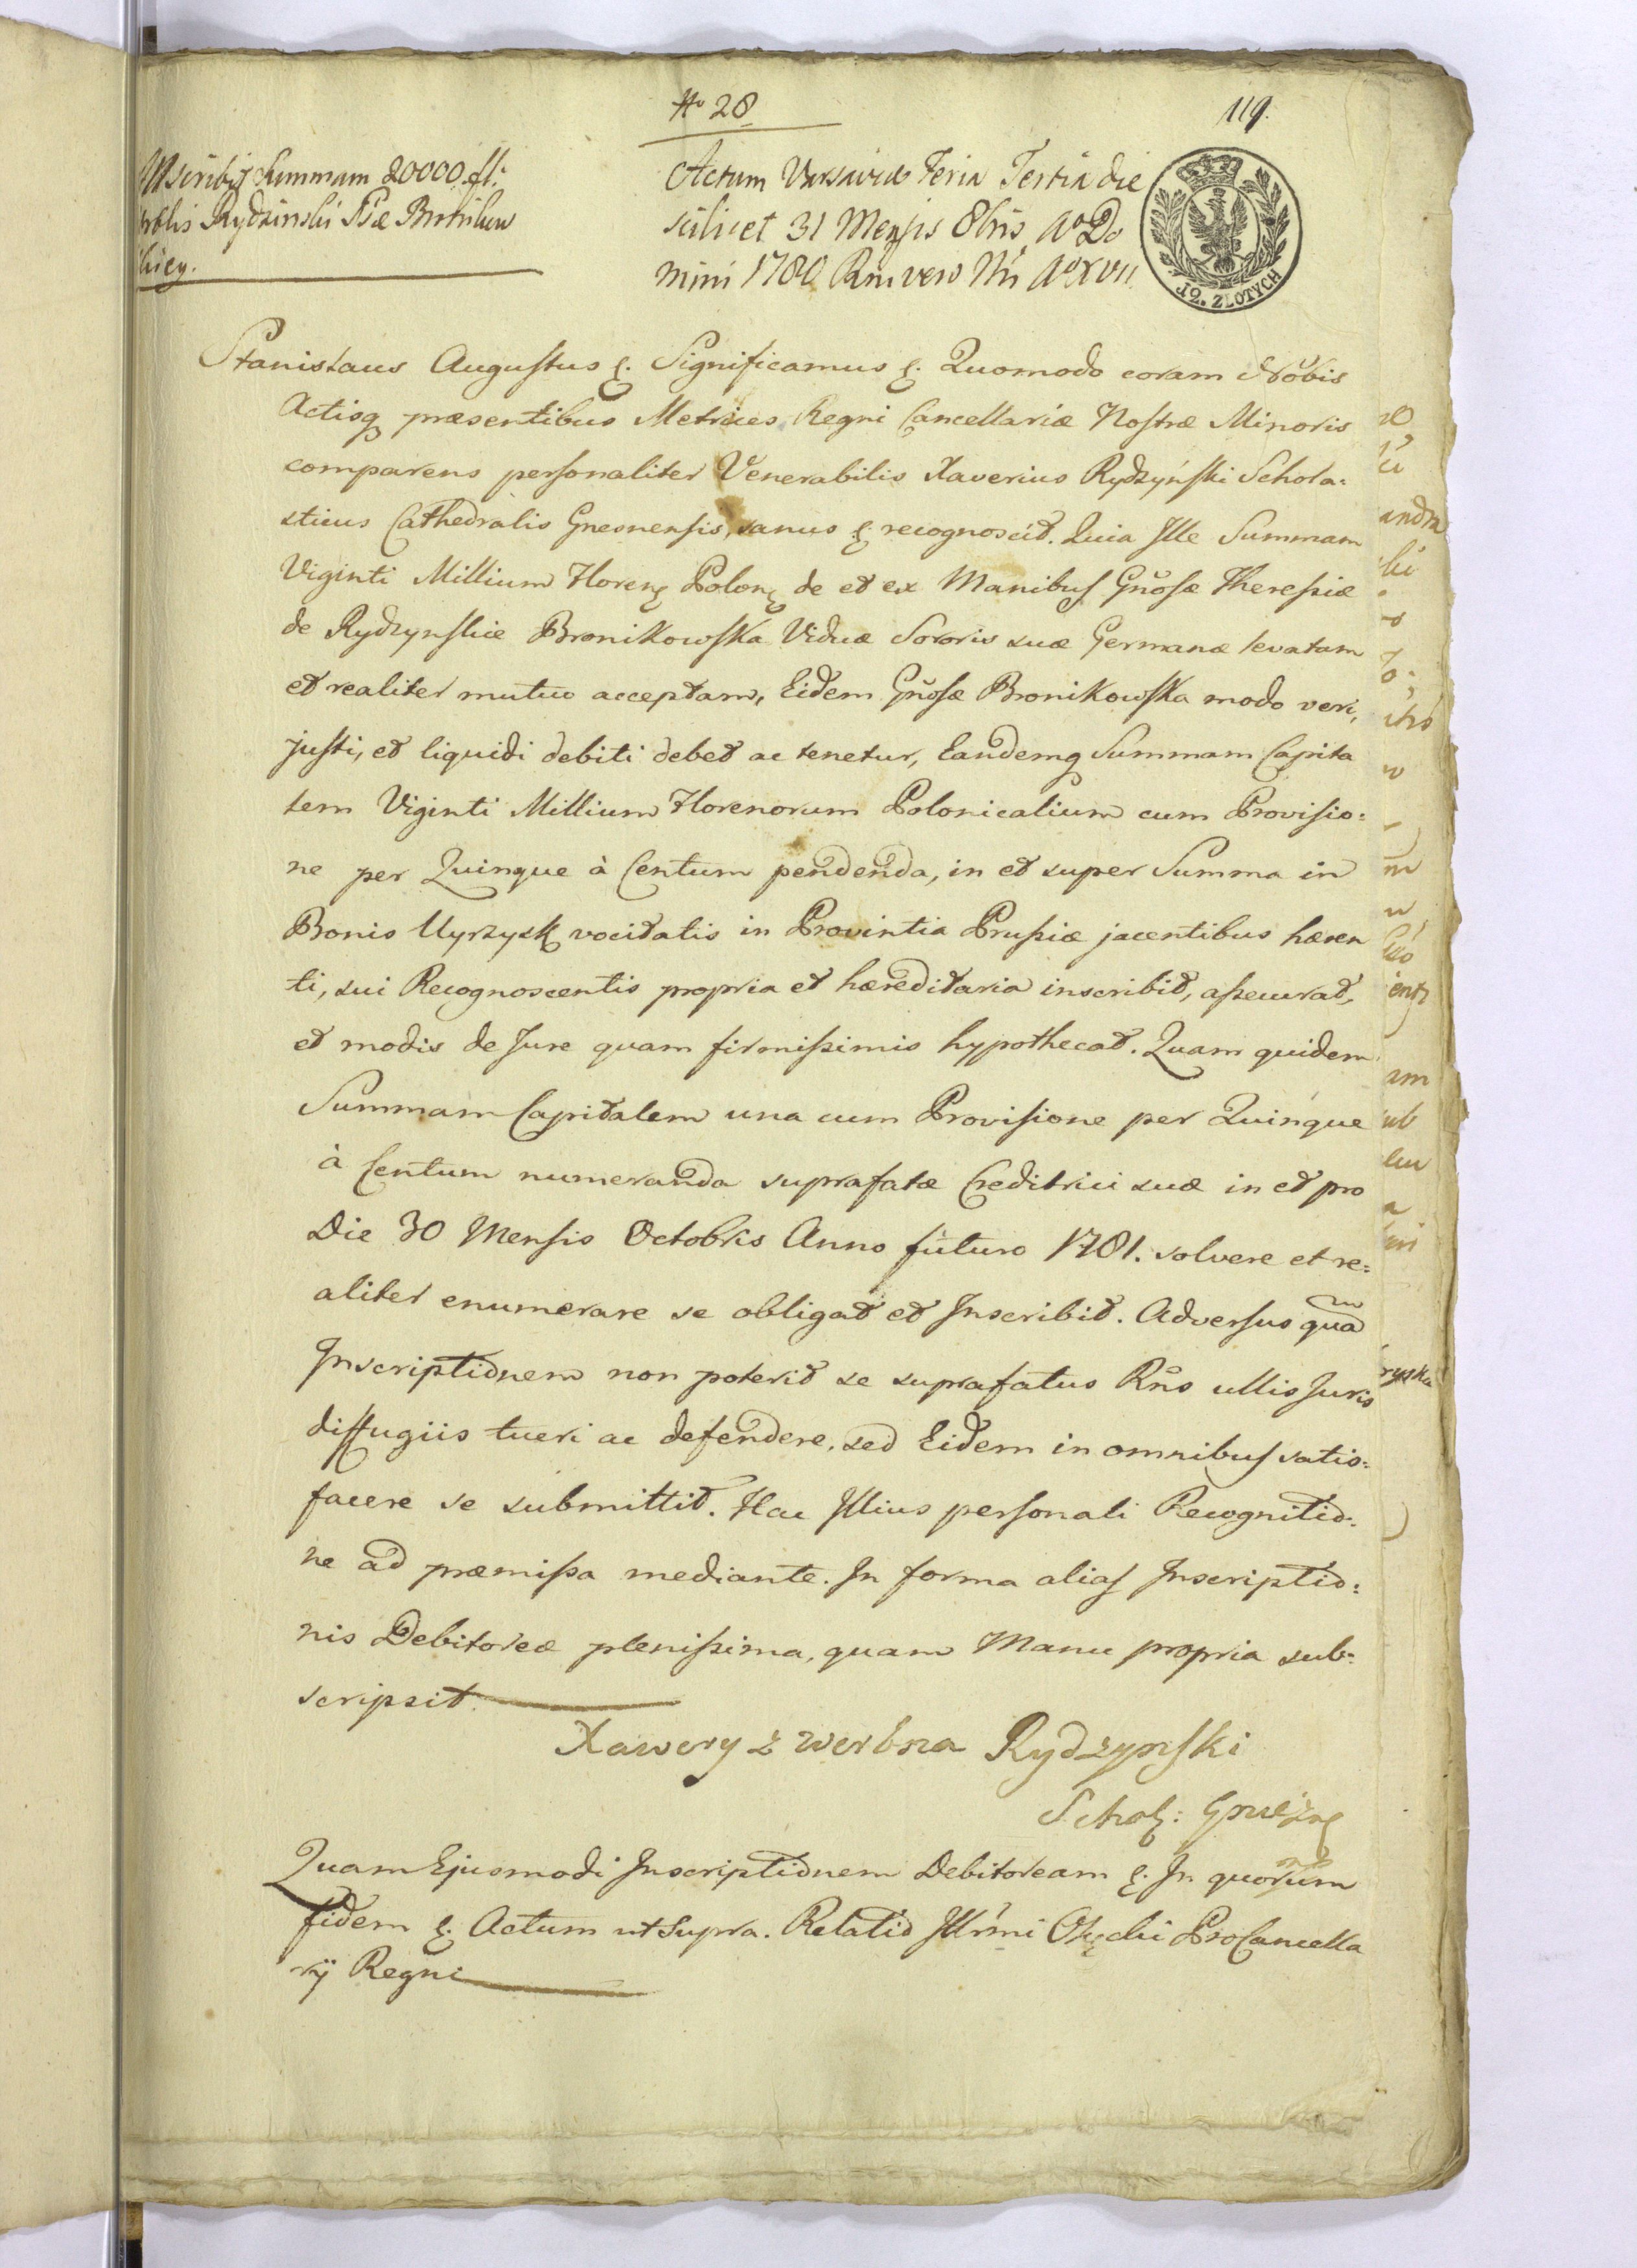 No 28
119.
Inscribit Summam 20000 fl:
Rydzinski
Actum Varsaviæ Feria Tertia die
scilicet 31 Mensis 8bris Ao Do
mini 1780 Rni vero Nri Ao XVII
12. ZŁOTYCH
Stanislaus Augustus &. Significamus &. Quomodo coram Nobis
Actisq præsentibus Metrices Regni Cancellariæ Nostræ Minoris
comparens personaliter Venerabilis Xaverius Rydzyński Schola:
sticus Cathedralis Gnesnensis, sanus &. recognoscit. Quia Ille Summam
Viginti Millium Floren Polon de et ex Manibus Gnosæ Theresiæ
de Rydzynskie Bronikowska Viduæ Sororis suæ Germanæ levatam
et realiter mutuo acceptam, Eidem Gnosæ Bronikowska modo veri,
justi, et liquidi debiti debet ac tenetur, Eandemq Summam Capita
lem Viginti Millium Florenorum Polonicalium cum Provisio:
ne per Quinque à Centum pendenda, in et super Summa in
Bonis Uyrzysk vocitatis in Provintia Prussiæ jacentibus hæren
ti, sui Recognoscentis propria et hæreditaria inscribit, assecurat,
et modis de Jure quam firmissimis hypothecat. Quam quidem
Summam Capitalem una cum Provisione per Quinque
à Centum numeranda suprafatæ Creditrici suæ in et pro
Die 30 Mensis Octobris Anno futuro 1781. solvere et re:
aliter enumerare se obligat et Inscribit. Adversus quam
Inscriptionem non poterit se suprafatus Rns ullis Juris
diffugiis tueri ac defendere, sed Eidem in omnibus satis:
facere se submittit. Hac Illius personali Recognitio:
ne ad præmissa mediante. In forma alias Inscriptio:
nis Debitoreæ plenissima, quam Manu propria sub:
scripsit.
Xawery z Werbna Rydzynski
Schol: Gniezn
Quam Ejusmodi Inscriptionem Debitoream &. In quorum
fidem &. Actum ut Supra. Relatio Illrmi Okęcki ProCancella
rij Regni